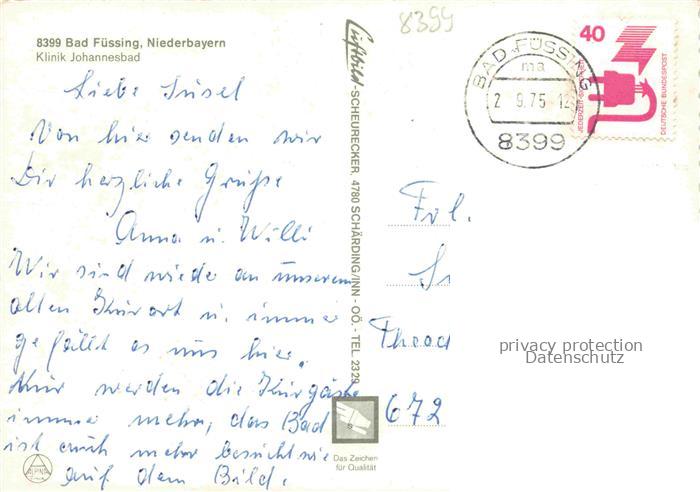 8399
8399 Bad Füssing, Niederbayern
Klinik Johannesbad
Liebe Susel
Von hier senden wir
Dir herzliche Grüße
Anna u. Willi
Wir sind wieder an unserem
alten Kurort u. immer
gefällt es uns hier.
Nur werden die Kurgäste
immer mehr, das Bad
ist auch mehr besucht wie
auf dem Bild.
ALPINA
Luftbild-SCHEURECKER, 4780 SCHÄRDING/INN - OÖ. - TEL. 2329
Das Zeichen
für Qualität
BAD FÜSSING
ma
2 9.75 12
8399
40
JEDERZEIT SICHERHEIT
DEUTSCHE BUNDESPOST
Frl.
Theod
672
privacy protection
Datenschutz